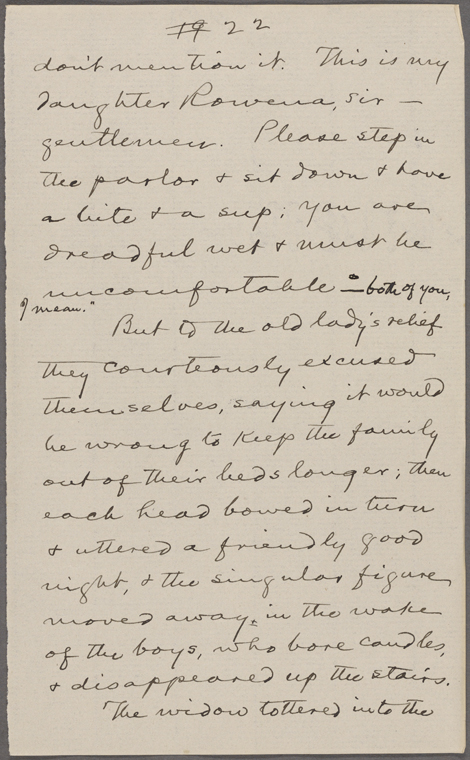 19 22
don't mention it. This is my
daughter Rowena, sir —
gentlemen. Please step in
the parlor & sit down & have
a bite & a sup; you are
dreadful wet & must be
uncomfortable — both of you,
I mean."
But to the old lady's relief
they courteously excused
themselves, saying it would
be wrong to keep the family
out of their beds longer; then
each head bowed in turn
& uttered a friendly good
night, & the singular figure
moved away in the wake
of the boys, who bore candles,
& disappeared up the stairs.
The widow tottered into the